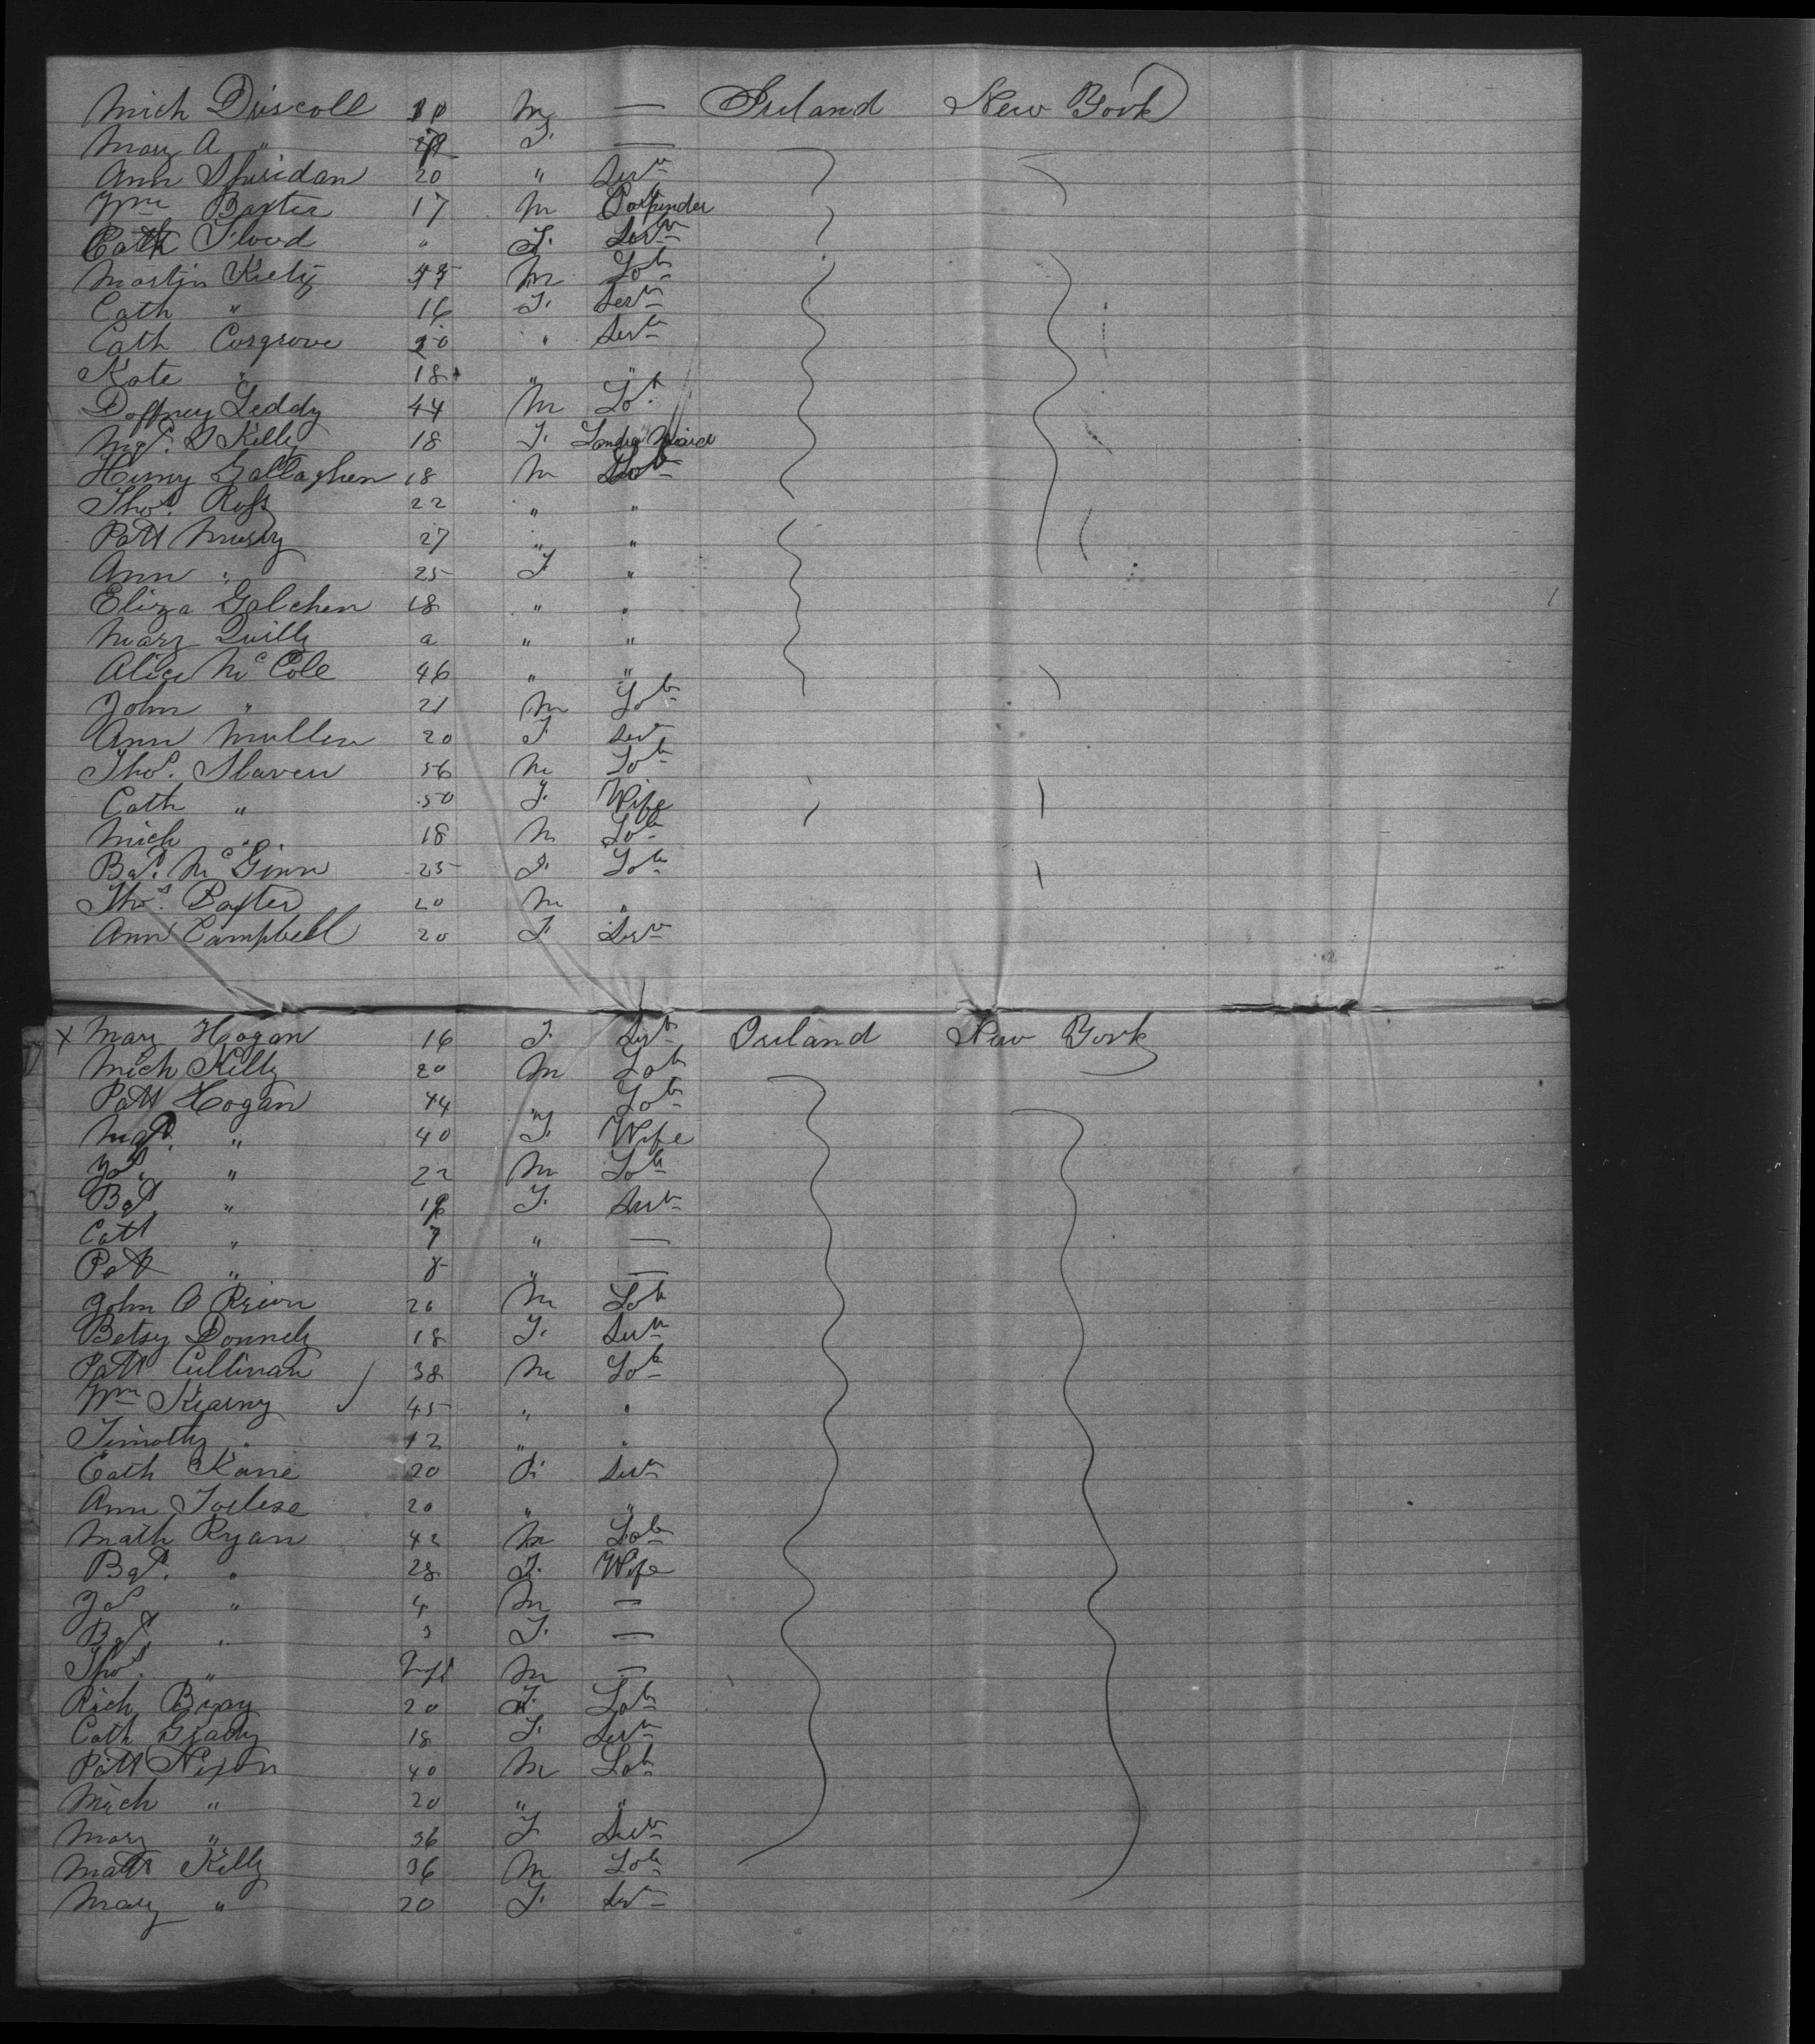 Mich Driscoll M — Ireland New York
Mary A " F. —
Ann Sheridan 20 " Servt
Wm Baxter 17 M Carpender
Cath Flood " F. Servt
Martin Kiely 45 M Lab
Cath " 16 F. Servt
Cath Cosgrove " Servt
Kate " 18 " "
Daffney Leddy 44 M Lab
Mgt. Kelly 18 F.
Henry Gallaghen 18 M Lab
Thos. Ross 22 " "
Patt 27 " "
Ann " 25 F "
Eliza Galchen 18 " "
Mary Quilly a " "
Alice McCole 46 " "
John " 21 M Lab
Ann Mullen 20 F Servt
Thos. Slaven 56 M Lab
Cath " 50 F. Wife
Mich " 18 M Lab
Bgt. McGinn 25 F. Lab
Thos. Baxter 20 M "
Ann Campbell 20 F. Servt
x Mary Hogan 16 F. Servt Ireland New York
Mich Kelly 20 M Lab
Patt Hogan 44 " Lab
Mgt. " 40 F. Wife
Jas " 22 M Lab
Bgt " F. Servt
Cath " 9 " —
Patt " 8 " —
John O Brien 26 M Lab
Betsy Donnely 18 F. Servt
Patt Cullinan 38 M Lab
Wm Kearny 45 " "
Timothy " 12 " "
Cath Kane 20 F. Servt
Ann 20 " "
Math Ryan 42 M Lab
Bgt. " 28 F. Wife
Jas " 4 M —
Bgt " 3 F. —
Thos. " Inft M —
Rich Bray 20 Lab
Cath Grady 18 F. Servt
Patt Nixon 40 M Lab
Mich " 20 " "
Mary " 36 F Servt
Matt Kelly 36 M Lab
Mary " 20 F. Servt